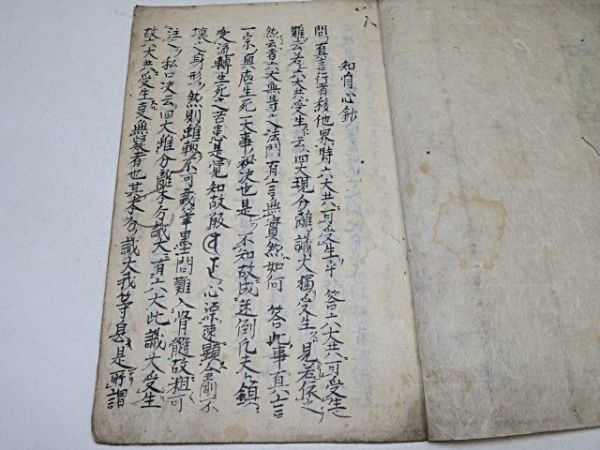 知肖心鈔
問真言行者移他界時六大共可受生乎 答六大共可受生
難云若六大共受生云四大現分離識大獨受生見若依之
然云者六大無㝵之法門有言無實然如何 答此事真言
一宗與底生死一大事秘決也是不知故成迷倒凡夫鎮
受流轉生死之苦患是覺知故 心源速顯金剛不
壞之身形然則雖輙不可載筆墨問難入骨髓故粗可
注之私口决云四大雖分離本分識大有六大此識大受生
故六大共受生更無疑者也其本分識大我等息是所謂